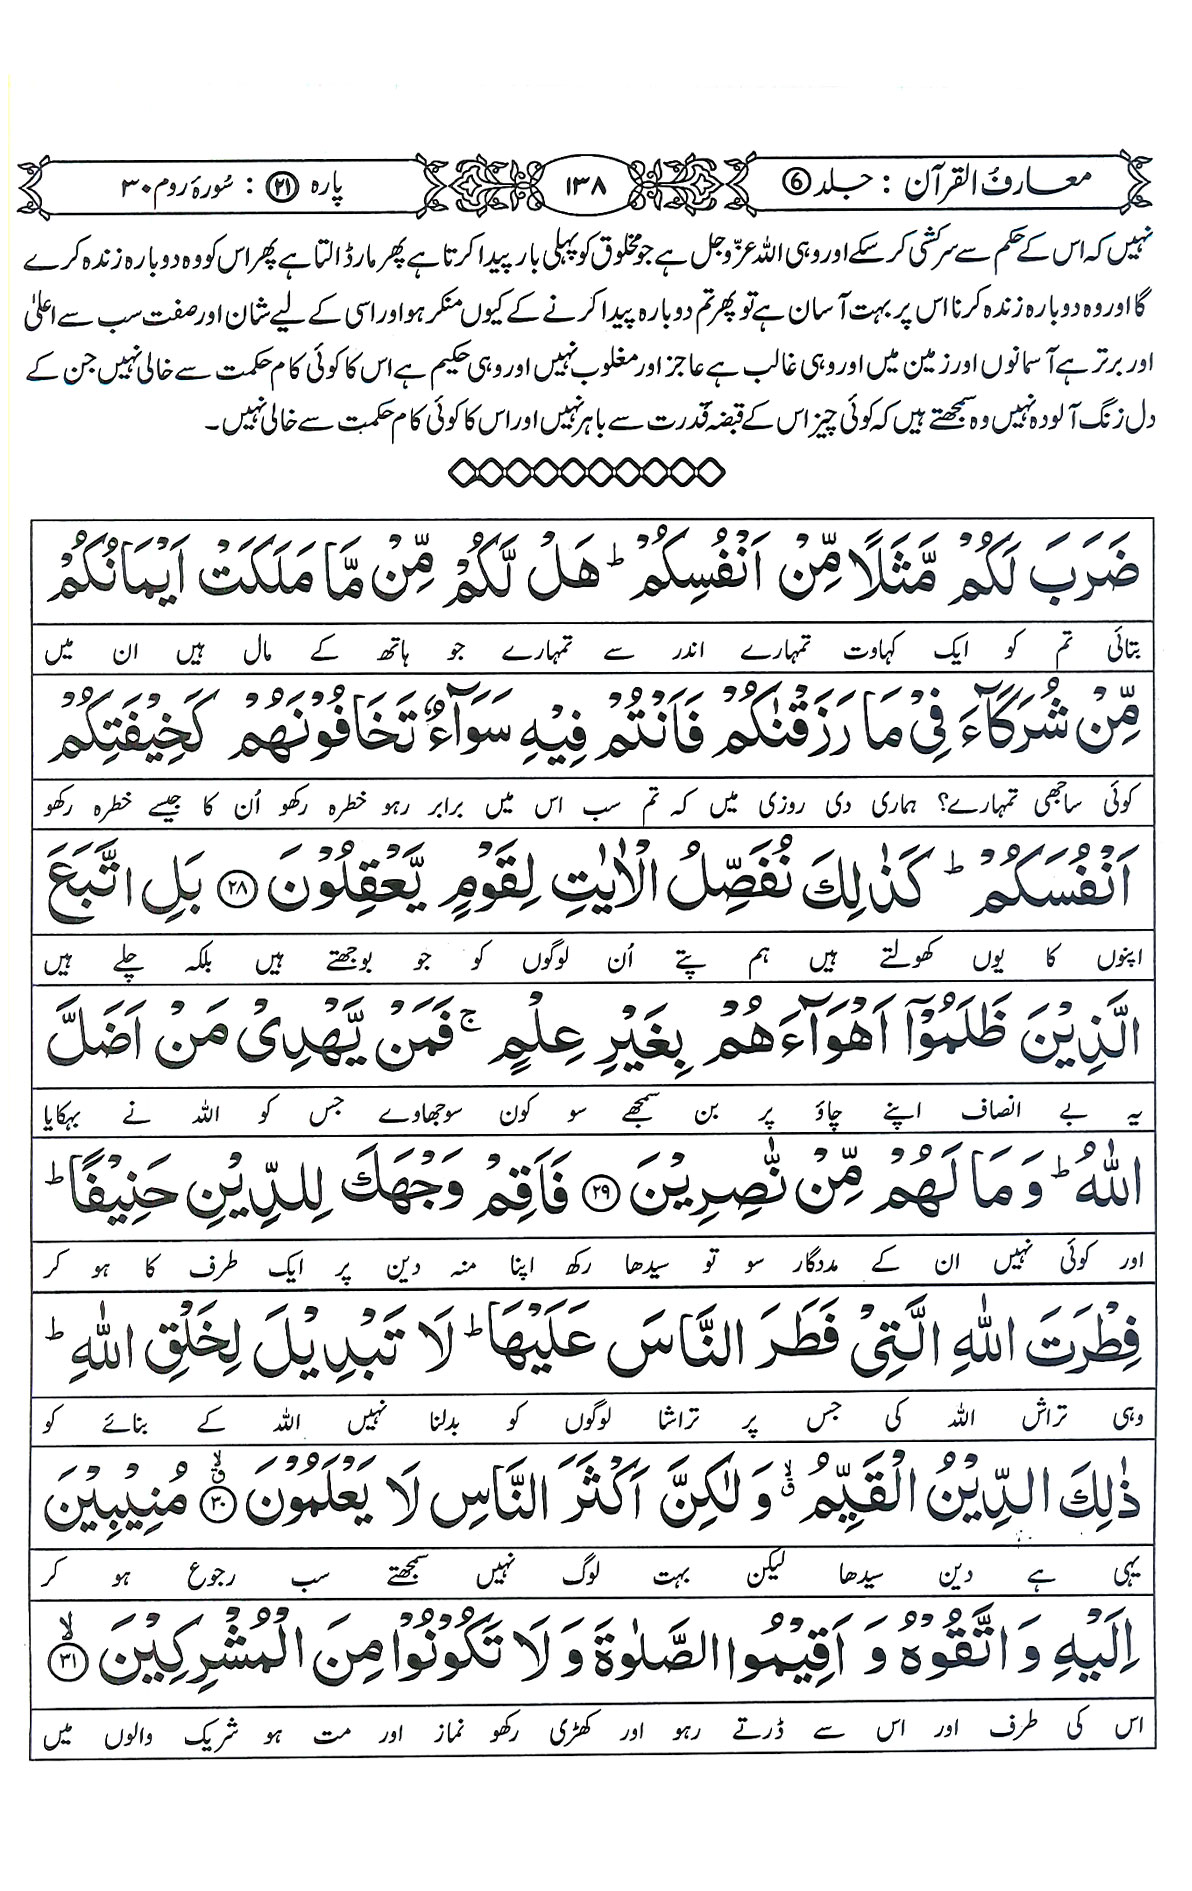 معارف القرآن : جلد ⑥
۱۳۸
پارہ ۲۱ : سُورۂ روم ۳۰
نہیں کہ اس کے حکم سے سرکشی کر سکے اور وہی اللہ عزّوجل ہے جو مخلوق کو پہلی بار پیدا کرتا ہے پھر مار ڈالتا ہے پھر اس کو وہ دوبارہ زندہ کرے
گا اور وہ دوبارہ زندہ کرنا اس پر بہت آسان ہے تو پھر تم دوبارہ پیدا کرنے کے کیوں منکر ہو اور اسی کے لیے شان اور صفت سب سے اعلیٰ
اور برتر ہے آسمانوں اور زمین میں اور وہی غالب ہے عاجز اور مغلوب نہیں اور وہی حکیم ہے اس کا کوئی کام حکمت سے خالی نہیں جن کے
دل زنگ آلودہ نہیں وہ سمجھتے ہیں کہ کوئی چیز اس کے قبضۂ قدرت سے باہر نہیں اور اس کا کوئی کام حکمت سے خالی نہیں۔
ضَرَبَ لَكُمْ مَّثَلًا مِّنْ اَنْفُسِكُمْ ؕ هَلْ لَّكُمْ مِّنْ مَّا مَلَكَتْ اَيْمَانُكُمْ
بتائی تم کو ایک کہاوت تمہارے اندر سے تمہارے جو ہاتھ کے مال ہیں ان میں
مِّنْ شُرَكَآءَ فِيْ مَا رَزَقْنٰكُمْ فَاَنْتُمْ فِيْهِ سَوَآءٌ تَخَافُوْنَهُمْ كَخِيْفَتِكُمْ
کوئی ساجھی تمہارے؟ ہماری دی روزی میں کہ تم سب اس میں برابر رہو خطرہ رکھو اُن کا جیسے خطرہ رکھو
اَنْفُسَكُمْ ؕ كَذٰلِكَ نُفَصِّلُ الْاٰيٰتِ لِقَوْمٍ يَّعْقِلُوْنَ ۲۸ بَلِ اتَّبَعَ
اپنوں کا یوں کھولتے ہیں ہم پتے اُن لوگوں کو جو بوجھتے ہیں بلکہ چلے ہیں
الَّذِيْنَ ظَلَمُوْٓا اَهْوَآءَهُمْ بِغَيْرِ عِلْمٍ ۚ فَمَنْ يَّهْدِيْ مَنْ اَضَلَّ
یہ بے انصاف اپنے چاؤ پر بن سمجھے سو کون سوجھاوے جس کو اللہ نے بہکایا
اللّٰهُ ؕ وَمَا لَهُمْ مِّنْ نّٰصِرِيْنَ ۲۹ فَاَقِمْ وَجْهَكَ لِلدِّيْنِ حَنِيْفًا ؕ
اور کوئی نہیں ان کے مددگار سو تو سیدھا رکھ اپنا منہ دین پر ایک طرف کا ہو کر
فِطْرَتَ اللّٰهِ الَّتِيْ فَطَرَ النَّاسَ عَلَيْهَا ؕ لَا تَبْدِيْلَ لِخَلْقِ اللّٰهِ ؕ
وہی تراش اللہ کی جس پر تراشا لوگوں کو بدلنا نہیں اللہ کے بنائے کو
ذٰلِكَ الدِّيْنُ الْقَيِّمُ ۙۗ وَلٰكِنَّ اَكْثَرَ النَّاسِ لَا يَعْلَمُوْنَ ۙۗ ۳۰ مُنِيْبِيْنَ
یہی ہے دین سیدھا لیکن بہت لوگ نہیں سمجھتے سب رجوع ہو کر
اِلَيْهِ وَاتَّقُوْهُ وَاَقِيْمُوا الصَّلٰوةَ وَلَا تَكُوْنُوْا مِنَ الْمُشْرِكِيْنَ ۙ ۳۱
اس کی طرف اور اس سے ڈرتے رہو اور کھڑی رکھو نماز اور مت ہو شریک والوں میں